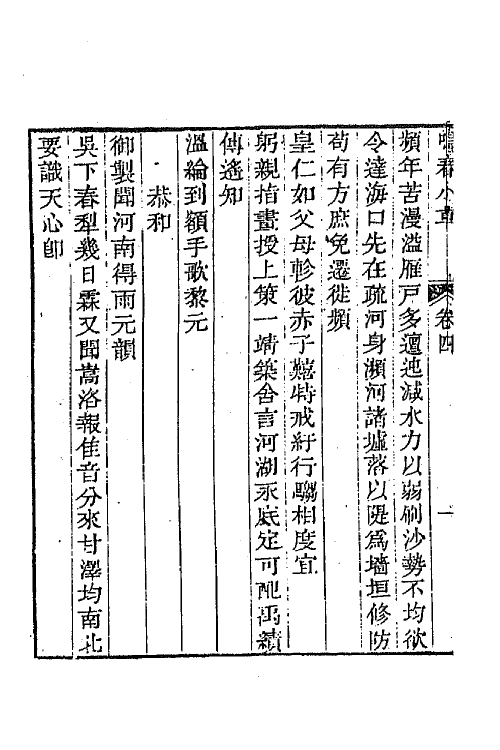 鳴春小草 卷四 一
頻年苦漫溢雁戸多邅迍減水力以弱刷沙勢不均欲
令達海口先在疏河身瀕河諸墟落以隄爲墻垣修防
苟有方庶免遷徙頻
皇仁如父母軫彼赤子艱特戒紆行騶相度宜
躬親指畫授上策一靖築舍言河湖永底定可配禹績
傳遙知
溫綸到額手歌黎元
恭和
御製聞河南得雨元韻
吳下春犁幾日霖又聞嵩洛報佳音分來甘澤均南北
要識天心卽